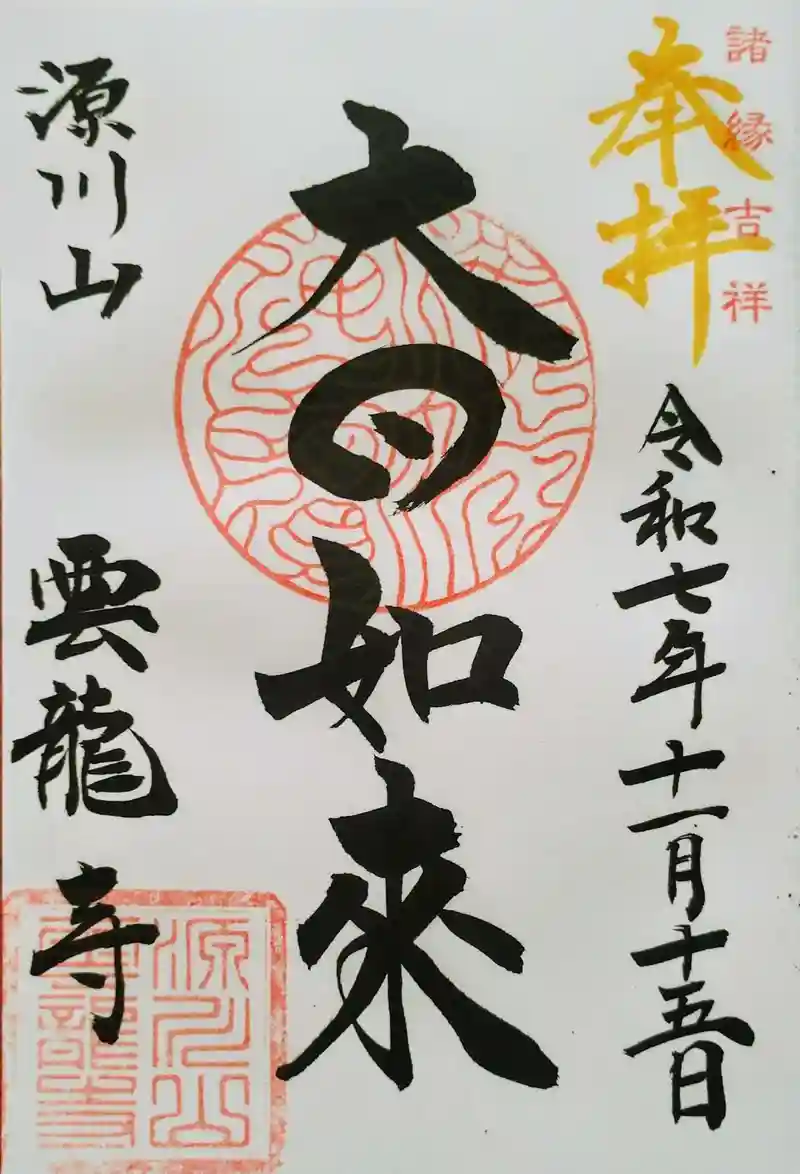 諸縁吉祥
奉拝
令和七年十一月十五日
大日如来
源川山
雲龍寺
源川山
雲龍寺